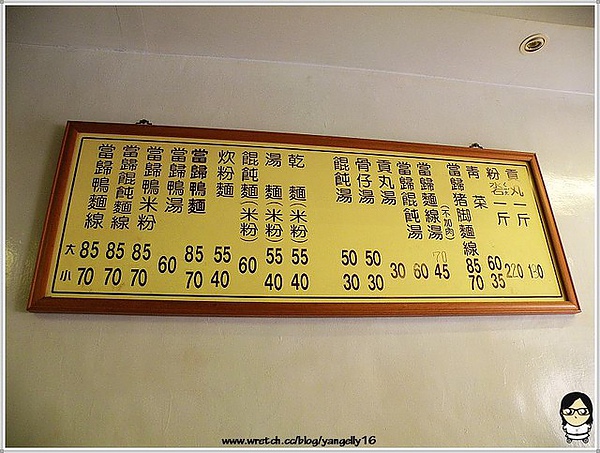 大 小
當歸鴨麵線 85 70
當歸餛飩麵線 85 70
當歸鴨米粉 85 70
當歸鴨湯 60
當歸鴨麵 85 70
炊粉麵 55 40
餛飩麵(米粉) 60
湯 麵(米粉) 55 40
乾 麵(米粉) 55 40
餛飩湯 50 30
骨仔湯 50 30
貢丸湯 30
當歸餛飩湯 60
當歸麵線湯(不加肉) 70 45
當歸猪脚麵線 85 70
青菜 60 35
粉 一斤 220
貢丸一斤
www.wretch.cc/blog/yangelly16